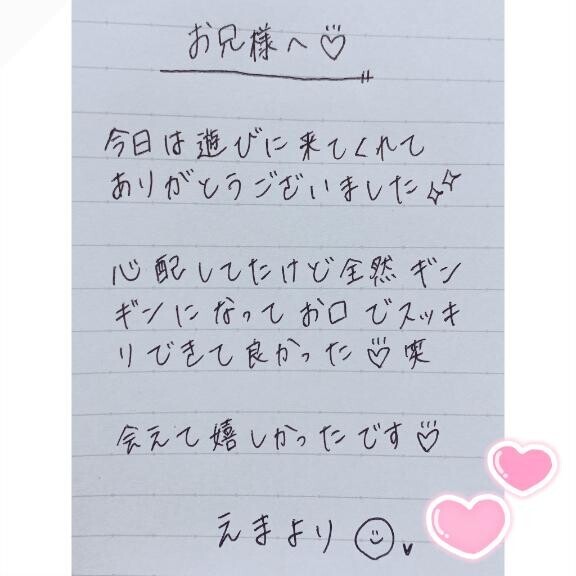 お兄様へ♡
今日は遊びに来てくれて
ありがとうございました✨
心配してたけど全然ギン
ギンになってお口でスッキ
リできて良かった♡笑
会えて嬉しかったです♡
えまより